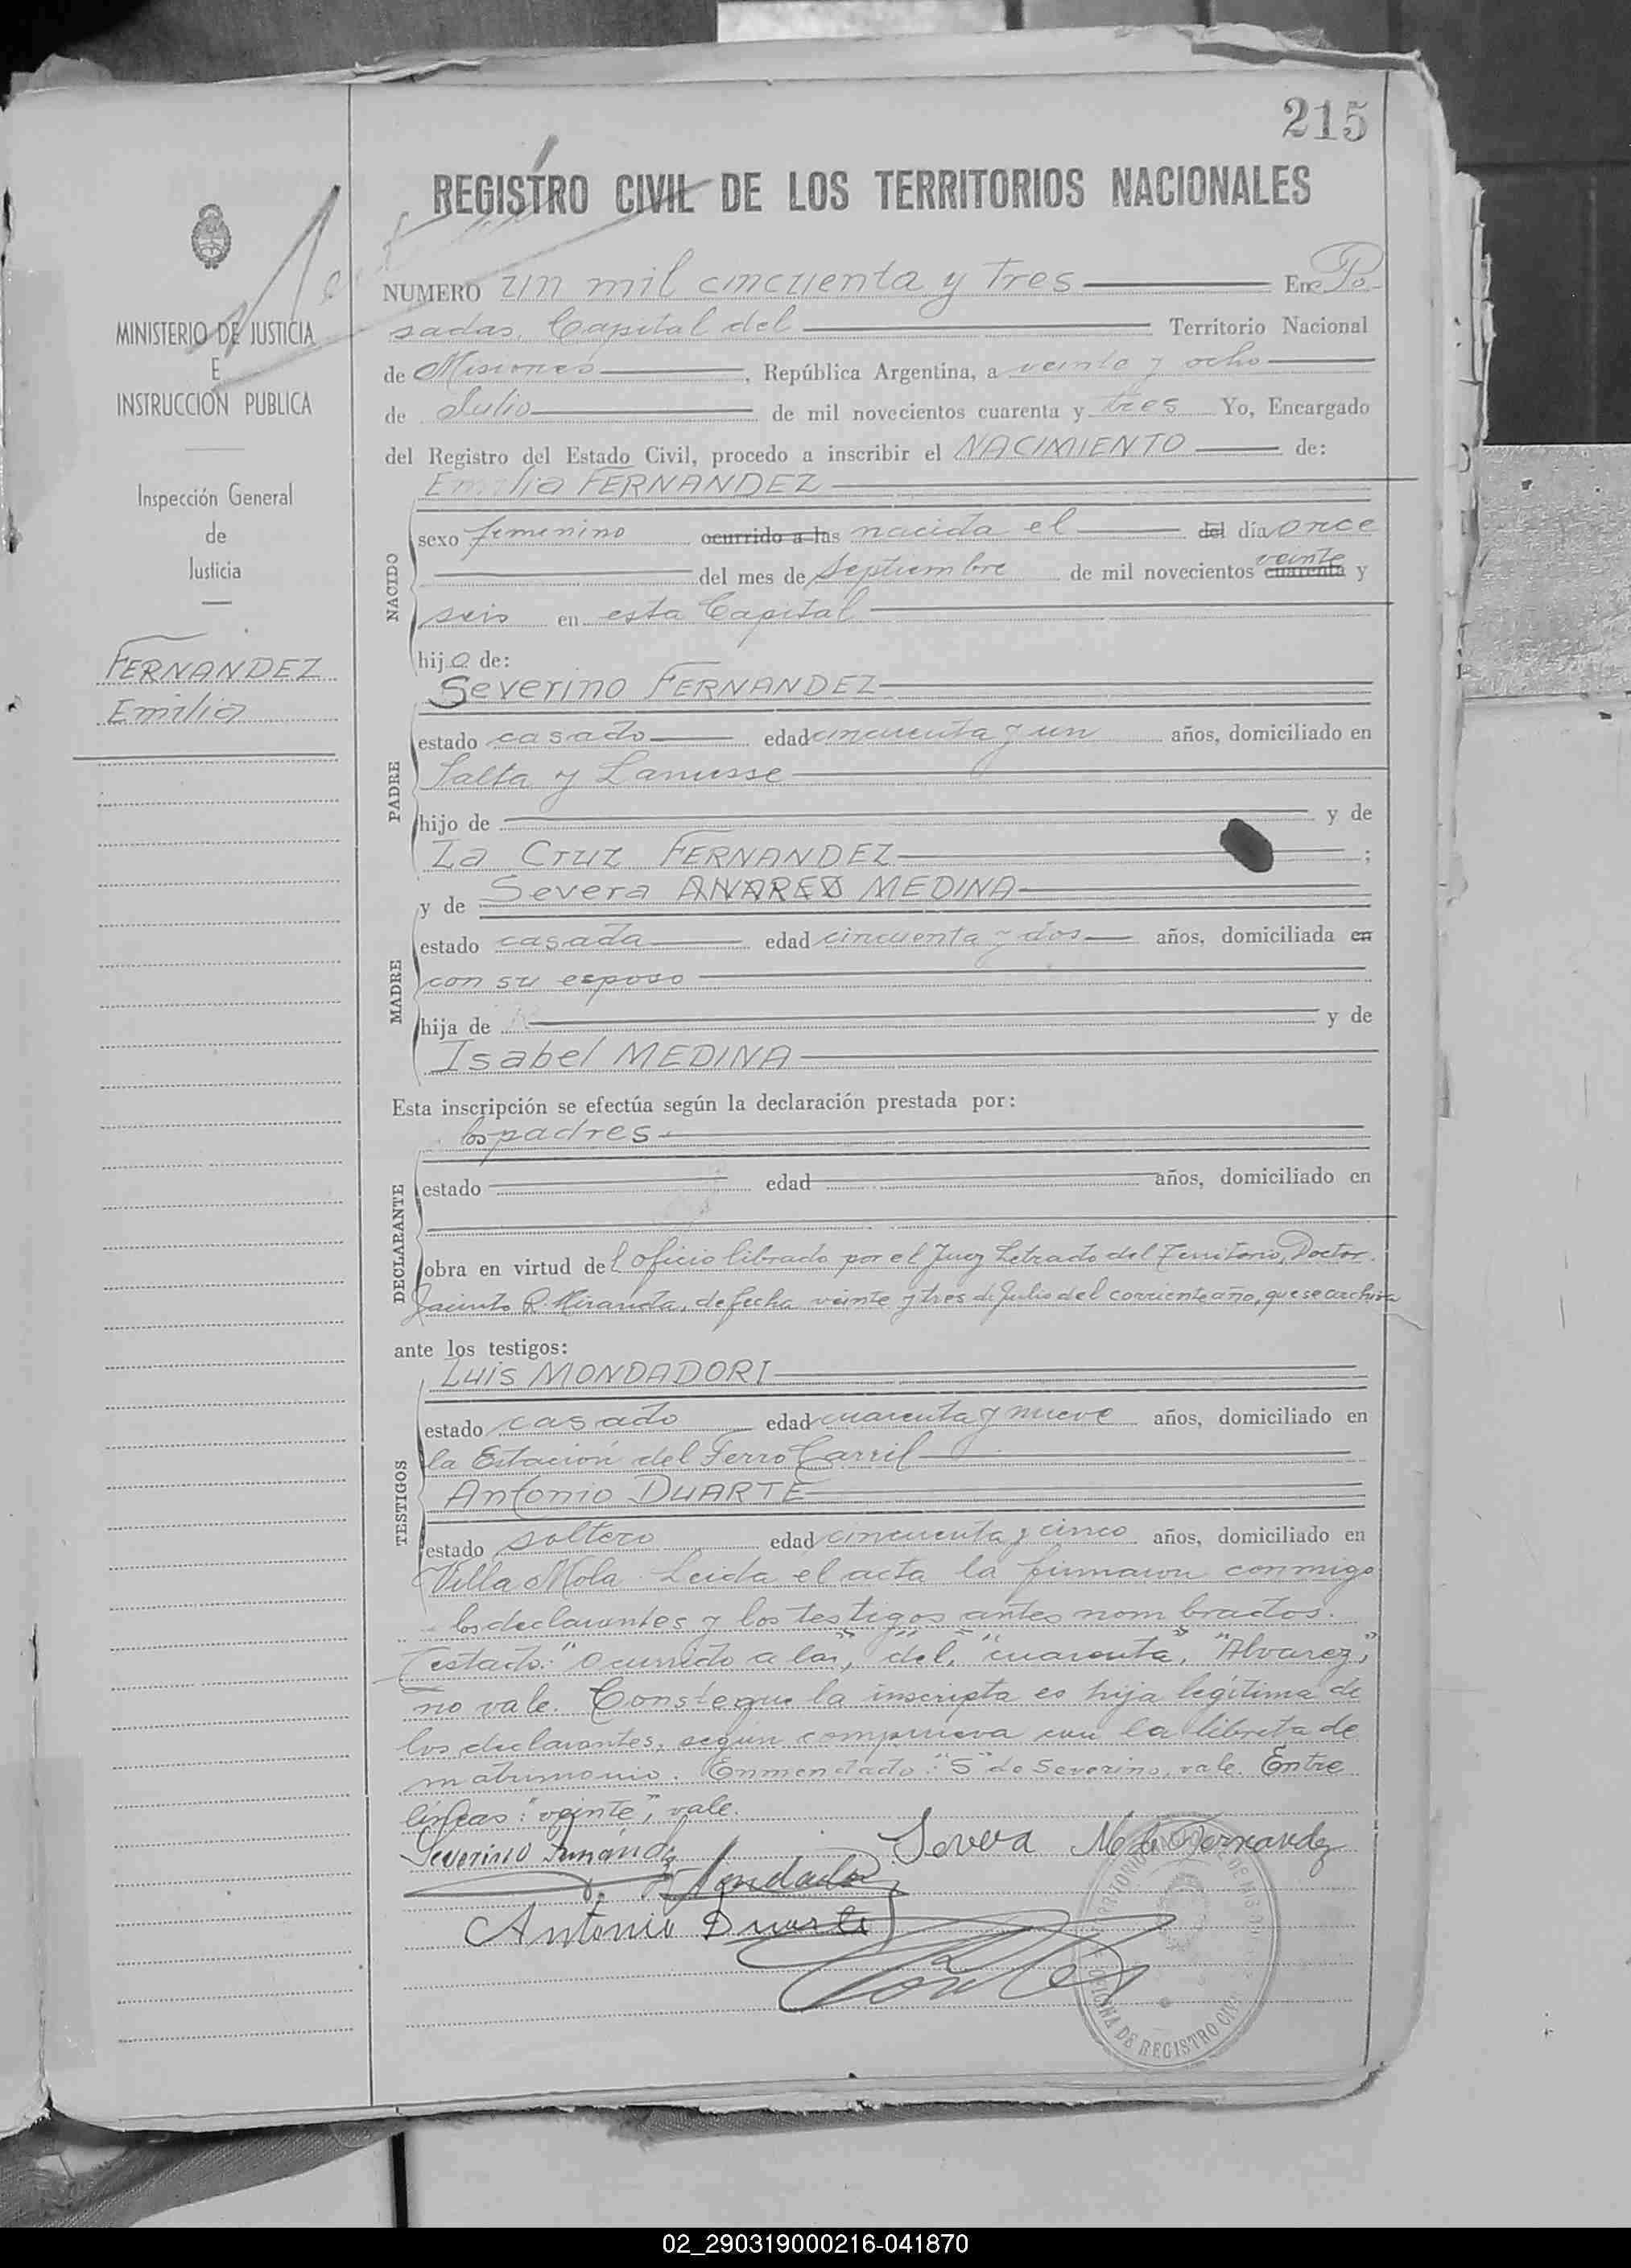 215
REGISTRO CIVIL DE LOS TERRITORIOS NACIONALES
MINISTERIO DE JUSTICIA
E
INSTRUCCIÓN PUBLICA
Inspección General
de
Justicia
FERNANDEZ
Emilia
NUMERO un mil cincuenta y tres En Po-
sadas, Capital del Territorio Nacional
de Misiones, República Argentina, a veinte y ocho
de Julio de mil novecientos cuarenta y tres Yo, Encargado
del Registro del Estado Civil, procedo a inscribir el NACIMIENTO de:
Emilia FERNANDEZ
NACIDO
sexo femenino ocurrido a las nacida el del día once
veinte
del mes de septiembre de mil novecientos cuarenta y
seis en esta Capital
hija de:
PADRE
Severino FERNANDEZ
estado casado edad cincuenta y un años, domiciliado en
Salta y Lanusse
hijo de y de
La Cruz FERNANDEZ ;
MADRE
y de Severa ALVAREZ MEDINA
estado casada edad cincuenta y dos años, domiciliada en
con su esposo
hija de y de
Isabel MEDINA
Esta inscripción se efectúa según la declaración prestada por:
DECLARANTE
los padres
estado edad años, domiciliado en
obra en virtud del oficio librado por el Juez Letrado del Territorio, Doctor
Jacinto R. Miranda, de fecha veinte y tres de Julio del corriente año, que se archiva
ante los testigos:
TESTIGOS
Luis MONDADORI
estado casado edad cuarenta y nueve años, domiciliado en
la Estación del Ferro Carril
Antonio DUARTE
estado soltero edad cincuenta y cinco años, domiciliado en
Villa Mola. Leida el acta la firmaron conmigo
los declarantes y los testigos antes nombrados.
Testado: "ocurrido a las", "del", "cuarenta", "Alvarez",
no vale. Conste que la inscripta es hija legítima de
los declarantes, según comprueva con la libreta de
matrimonio. Enmendado: "S" de Severino, vale. Entre
líneas: "veinte", vale.
Severino Fernández Severa M de Fernandez
Mondadori
Antonio Duarte
OFICINA DE REGISTRO CIVIL
02_290319000216-041870